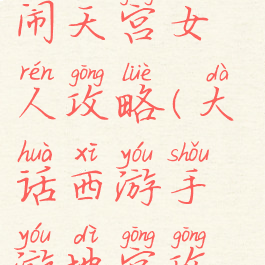 gōng
闹天宫女
rén gōng lüè dà
人攻略(大
huà xī yóu shǒu
话西游手
yóu dì gōng gōng
游地宫攻